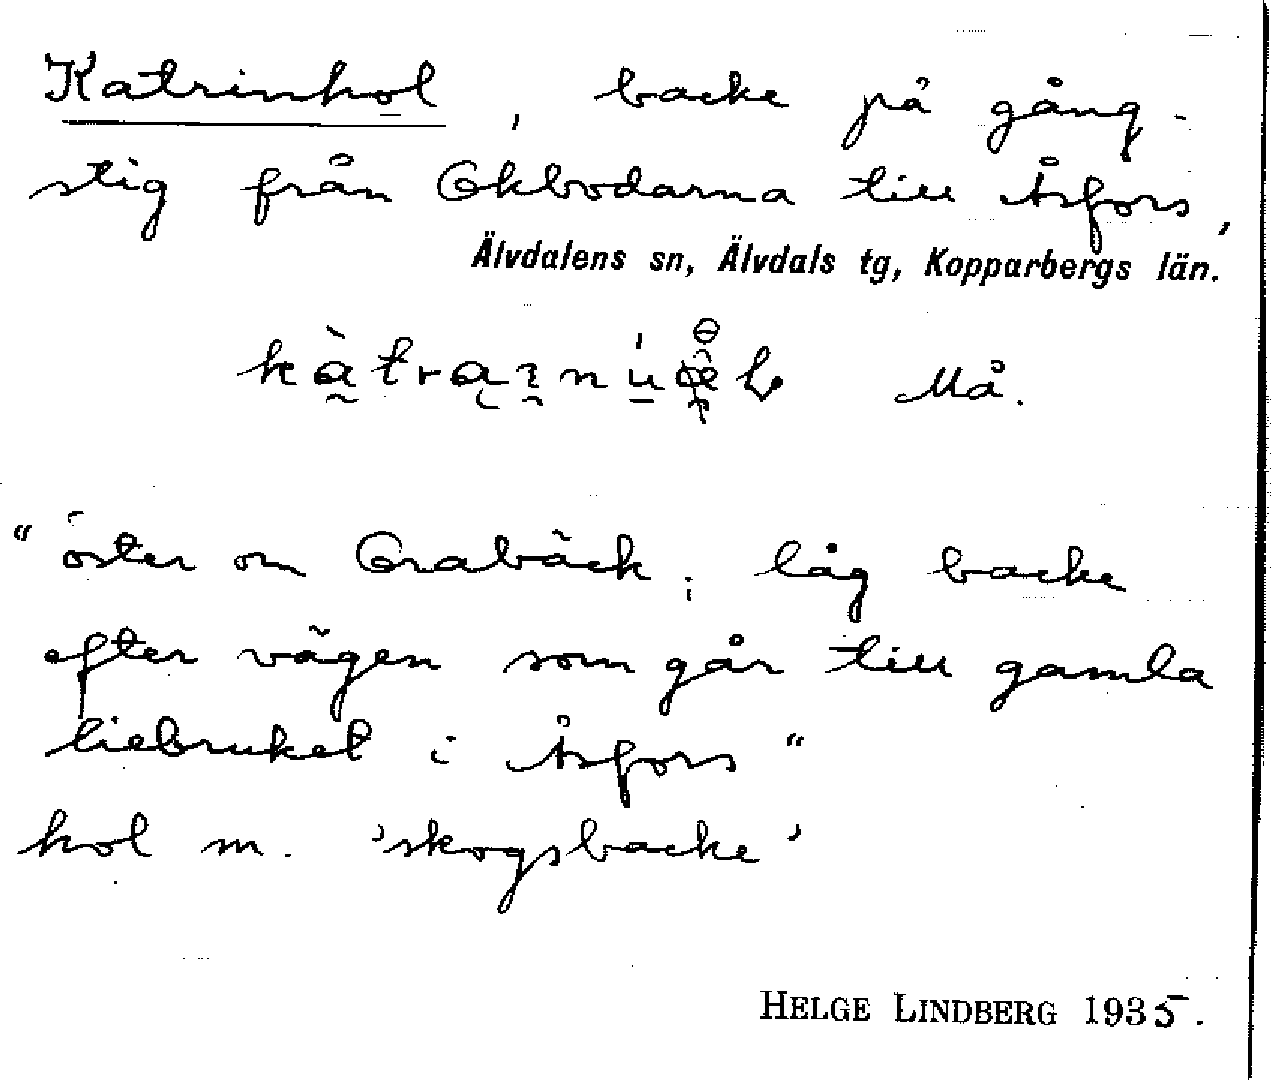 Katrinhol, backe på gång-
stig från Ekbodarna till Åsfors,
Älvdalens sn, Älvdals tg, Kopparbergs län.
Må.
"öster om Grabäck; låg backe
efter vägen som går till gamla
liebruket i Åsfors"
hol m. 'skogsbacke'
HELGE LINDBERG 1935.